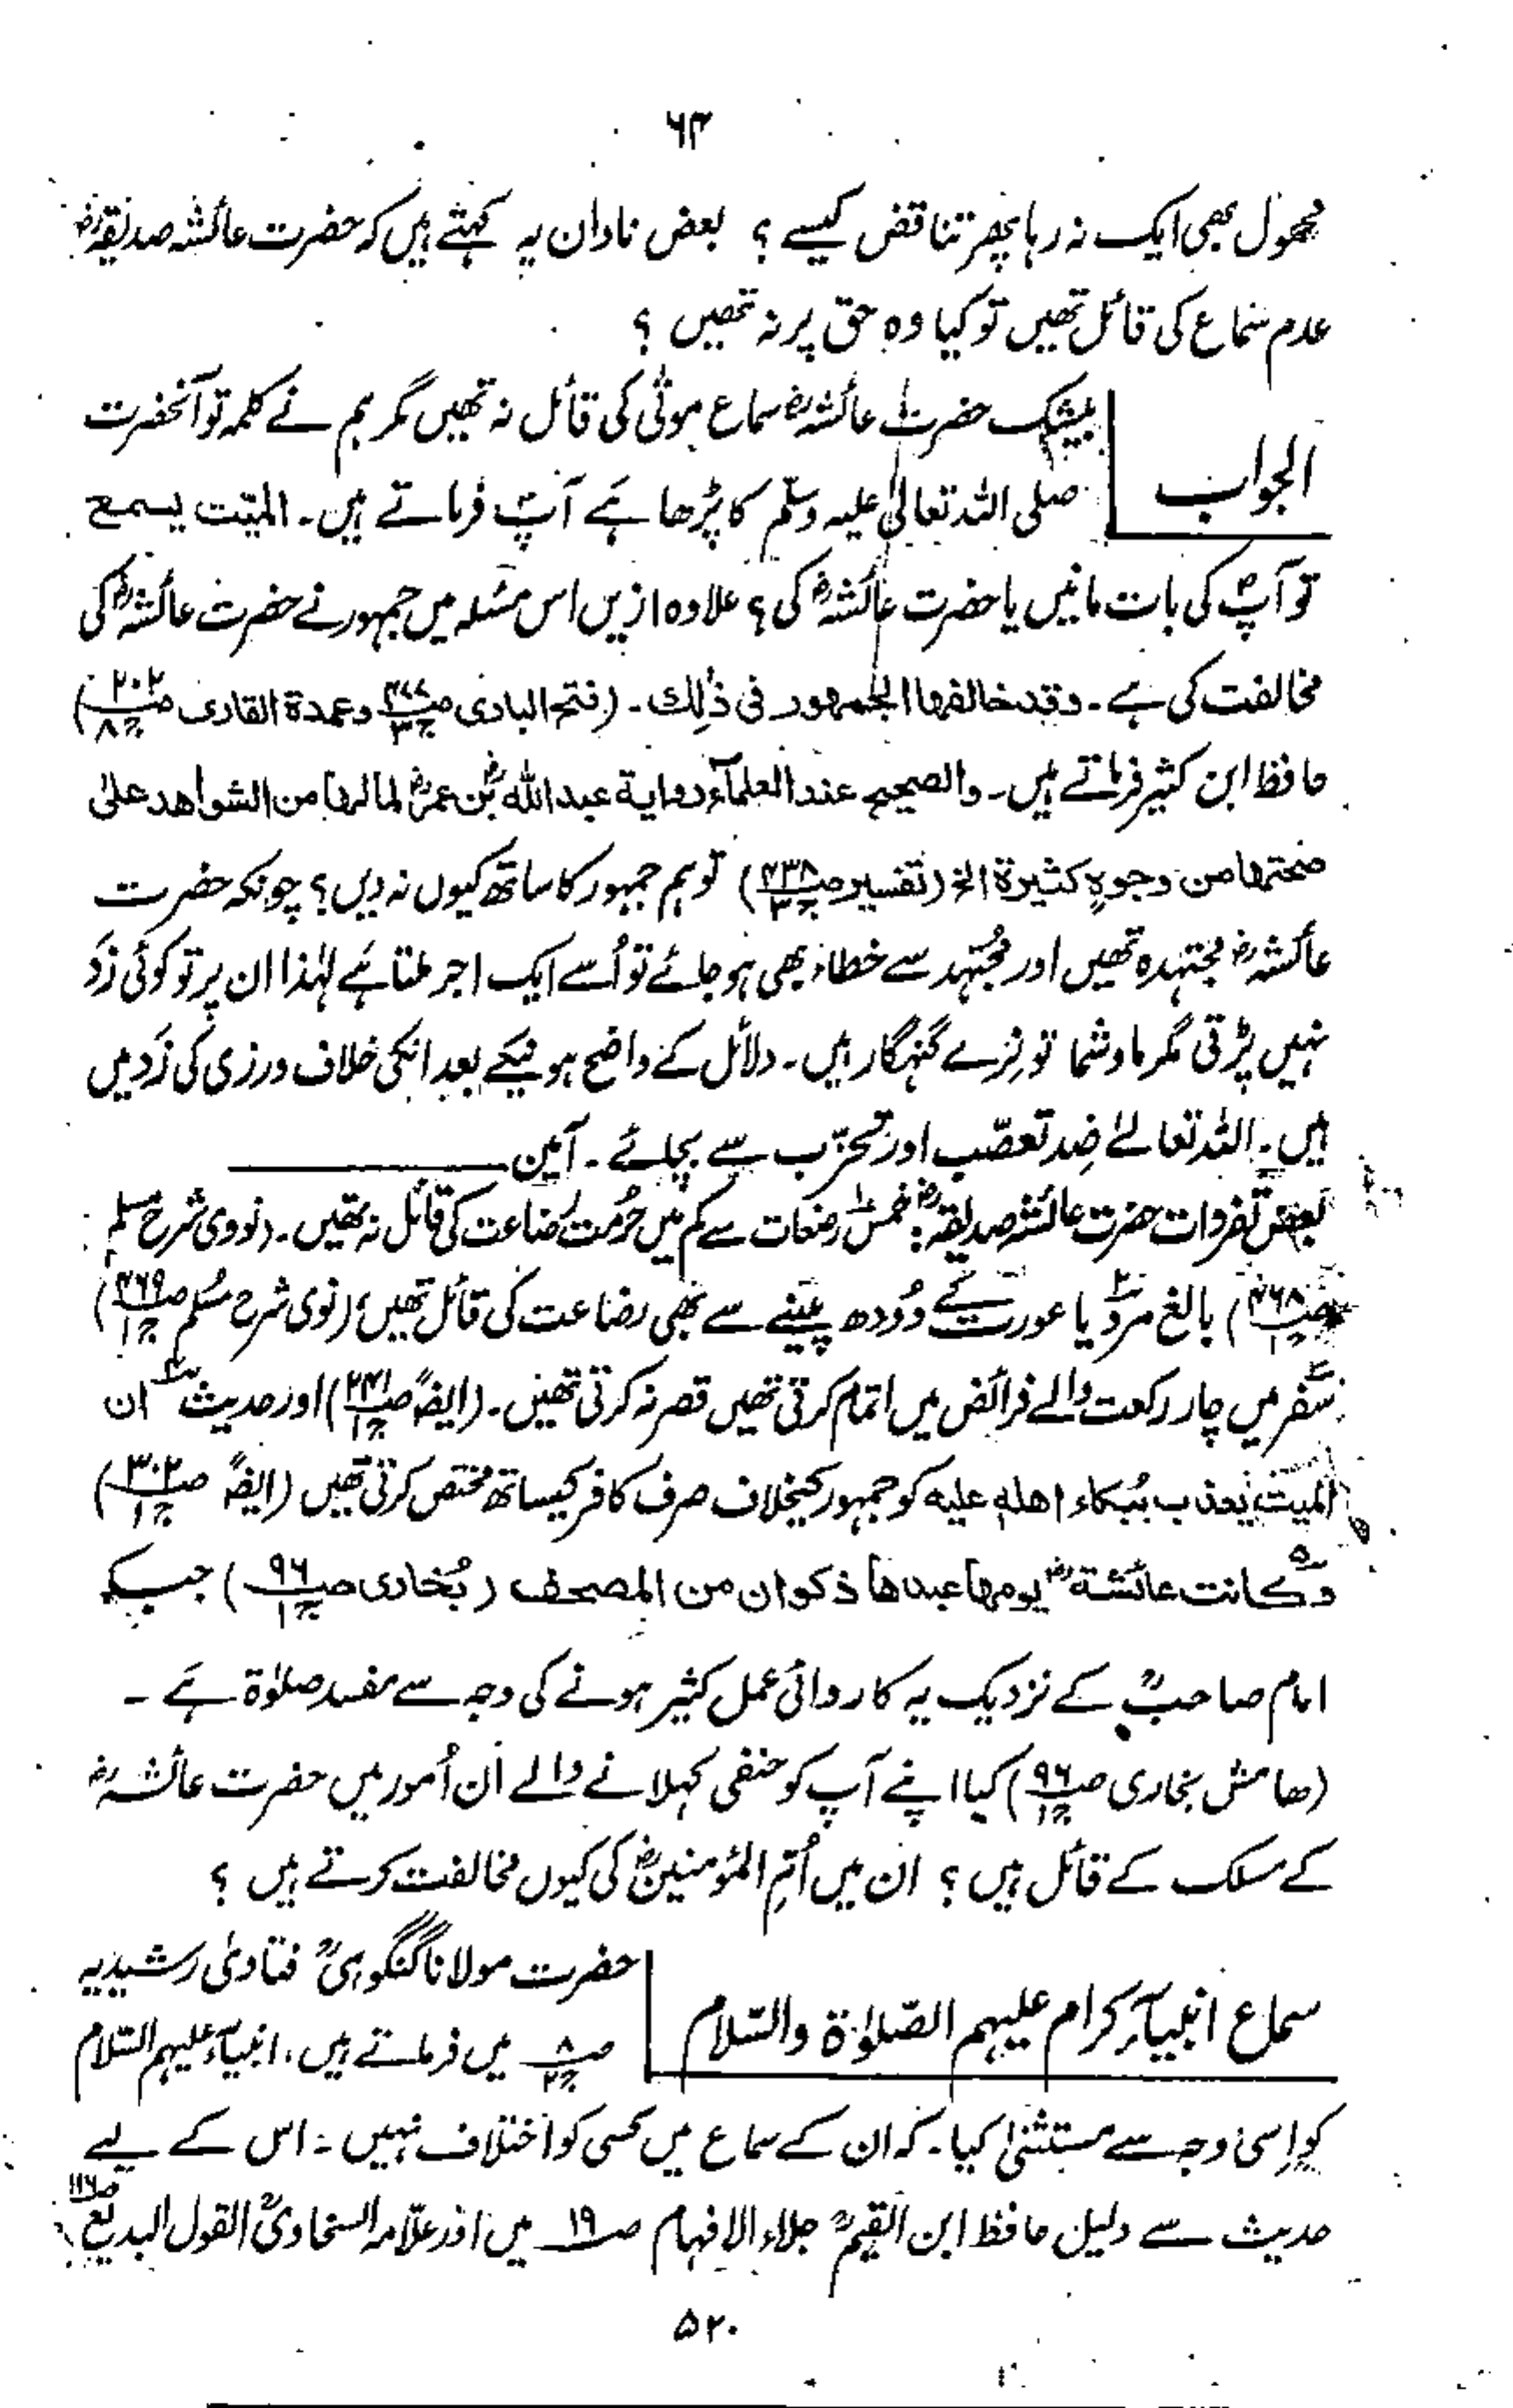 ۶۳
محمول بھی ایک نہ رہا پھر تناقض کیسے ؟ بعض نادان یہ کہتے ہیں کہ حضرت عائشہ صدیقہؓ
عدم سماع کی قائل تھیں تو کیا وہ حق پر نہ تھیں ؟
الجواب
بیشک حضرت عائشہؓ سماع موتٰی کی قائل نہ تھیں مگر ہم نے کلمہ تو آنحضرت
صلی اللہ تعالیٰ علیہ وسلّم کا پڑھا ہے آپؐ فرماتے ہیں۔ المیّت یسمع
تو آپؐ کی بات مانیں یا حضرت عائشہؓ کی ؟ علاوہ ازیں اس مسئلہ میں جمہور نے حضرت عائشہؓ کی
مخالفت کی ہے۔ وقد خالفها الجمهور فی ذٰلك۔ (فتح الباری صـ۴۷۷ جـ۳ وعمدۃ القاری صـ۲۰۲ جـ۸)
حافظ ابن کثیر فرماتے ہیں۔ والصحیح عند العلمآء روایة عبد اللهؓ بن عمرؓ لما لها من الشواهد علیٰ
صحّتها من وجوہٍ کثیرۃ الخ (تفسیر صـ۴۳۸ جـ۳) تو ہم جمہور کا ساتھ کیوں نہ دیں؟ چونکہ حضرت
عائشہؓ مجتہدہ تھیں اور مُجتہد سے خطاء بھی ہو جائے تو اُسے ایک اجر ملتا ہے لہٰذا ان پر تو کوئی زَد
نہیں پڑتی مگر ما و شما تو نِرے گنہگار ہیں۔ دلائل کے واضح ہو نیکے بعد انکی خلاف ورزی کی زَد میں
ہیں۔ اللہ تعالےٰ ضِد تعصّب اور تحزّب سے بچائے۔ آمین
بعض تفردات حضرت عائشہ صدیقہؓ: خمسؔ رضعات سے کم میں حُرمت رضاعت کی قائل نہ تھیں۔ (نووی شرح مسلم
صـ۴۶۸ جـ۱) بالغ مرد یا عورت کے دُودھ پینے سے بھی رضاعت کی قائل تھیں (نووی شرح مُسلم صـ۴۶۹ جـ۱)
سفر میں چار رکعت والے فرائض میں اتمام کرتی تھیں قصر نہ کرتی تھیں۔ (ایضاً صـ۲۴۱ جـ۱) اور حدیث ان
المیت یعذب ببکاء اهلہٖ علیہ کو جمہور کیخلاف صرف کافر کیساتھ مُختص کرتی تھیں (ایضاً صـ۳۰۲ جـ۱)
وکانت عائشۃؓ یومها عبدها ذکوان من المصحف (بُخاری صـ۹۶ جـ۱) جب کہ
امام صاحبؒ کے نزدیک یہ کاروائی عمل کثیر ہونے کی وجہ سے مفسد صلوٰۃ ہے ۔
(ھامش بخاری صـ۹۶ جـ۱) کیا اپنے آپ کو حنفی کہلانے والے ان اُمور میں حضرت عائشہؓ
کے مسلک کے قائل ہیں ؟ ان میں اُمّ المؤمنینؓ کی کیوں مخالفت کرتے ہیں ؟
سماع انبیآءِ کرام علیہم الصّلوٰۃ والسّلام
حضرت مولانا گنگوہیؒ فتاویٰ رشیدیہ
صـ۸ جـ۲ میں فرماتے ہیں، انبیآء علیہم السّلام
کو اِسی وجہ سے مستثنیٰ کیا۔ کہ ان کے سماع میں کسی کو اختلاف نہیں ۔ اس کے لیے
حدیث سے دلیل حافظ ابن القیمؒ جلاء الافہام صـ۱۹ میں اور علّامہ السخاویؒ القول البدیع صـ۱۱۶
۵۲۰